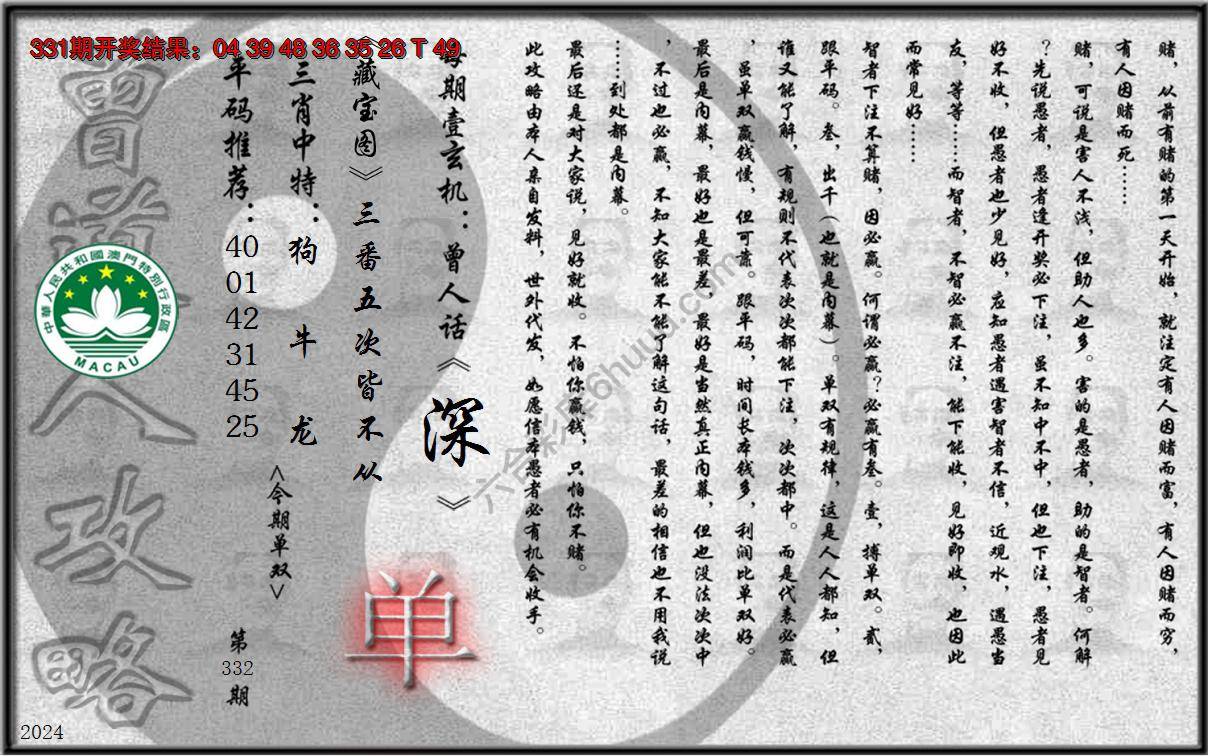 331期开奖结果：04 39 48 36 35 26 T 49
赌，从前有赌的第一天开始，就注定有人因赌而富，有人因赌而穷，
有人因赌而死……
赌，可说是害人不浅，但助人也多。害的是愚者，助的是智者。何解
？先说愚者，愚者逢开奖必下注，虽不知中不中，但也下注，愚者见
好不收，但愚者也少见好，应知愚者遇害智者不信，近观水，遇愚当
友，等等……而智者，不智必赢不注，能下能收，见好即收，也因此
而常见好……
智者下注不算赌，因必赢。何谓必赢？必赢有叁。壹，搏单双。贰，
跟平码。叁，出千（也就是内幕）。单双有规律，这是人人都知，但
谁又能了解，有规则不代表次次都能下注，次次都中。而是代表必赢
，虽单双赢钱慢，但可靠。跟平码，时间长本钱多，利润比单双好。
最后是内幕，最好也是最差，最好是当然真正内幕，但也没法次次中
，不过也必赢，不知大家能不能了解这句话，最差的相信也不用我说
……到处都是内幕。
最后还是对大家说，见好就收。不怕你赢钱，只怕你不赌。
此攻略由本人亲自发料，世外代发，如愿信本愚者必有机会收手。
每期壹玄机：曾人话《深》
《藏宝图》三番五次皆不从
三肖中特：狗 牛 龙
<今期单双>
单
平码推荐：40 01 42 31 45 25
第332期
曾道人攻略
中華人民共和國澳門特別行政區
MACAU
六合彩库6huuu.com
2024